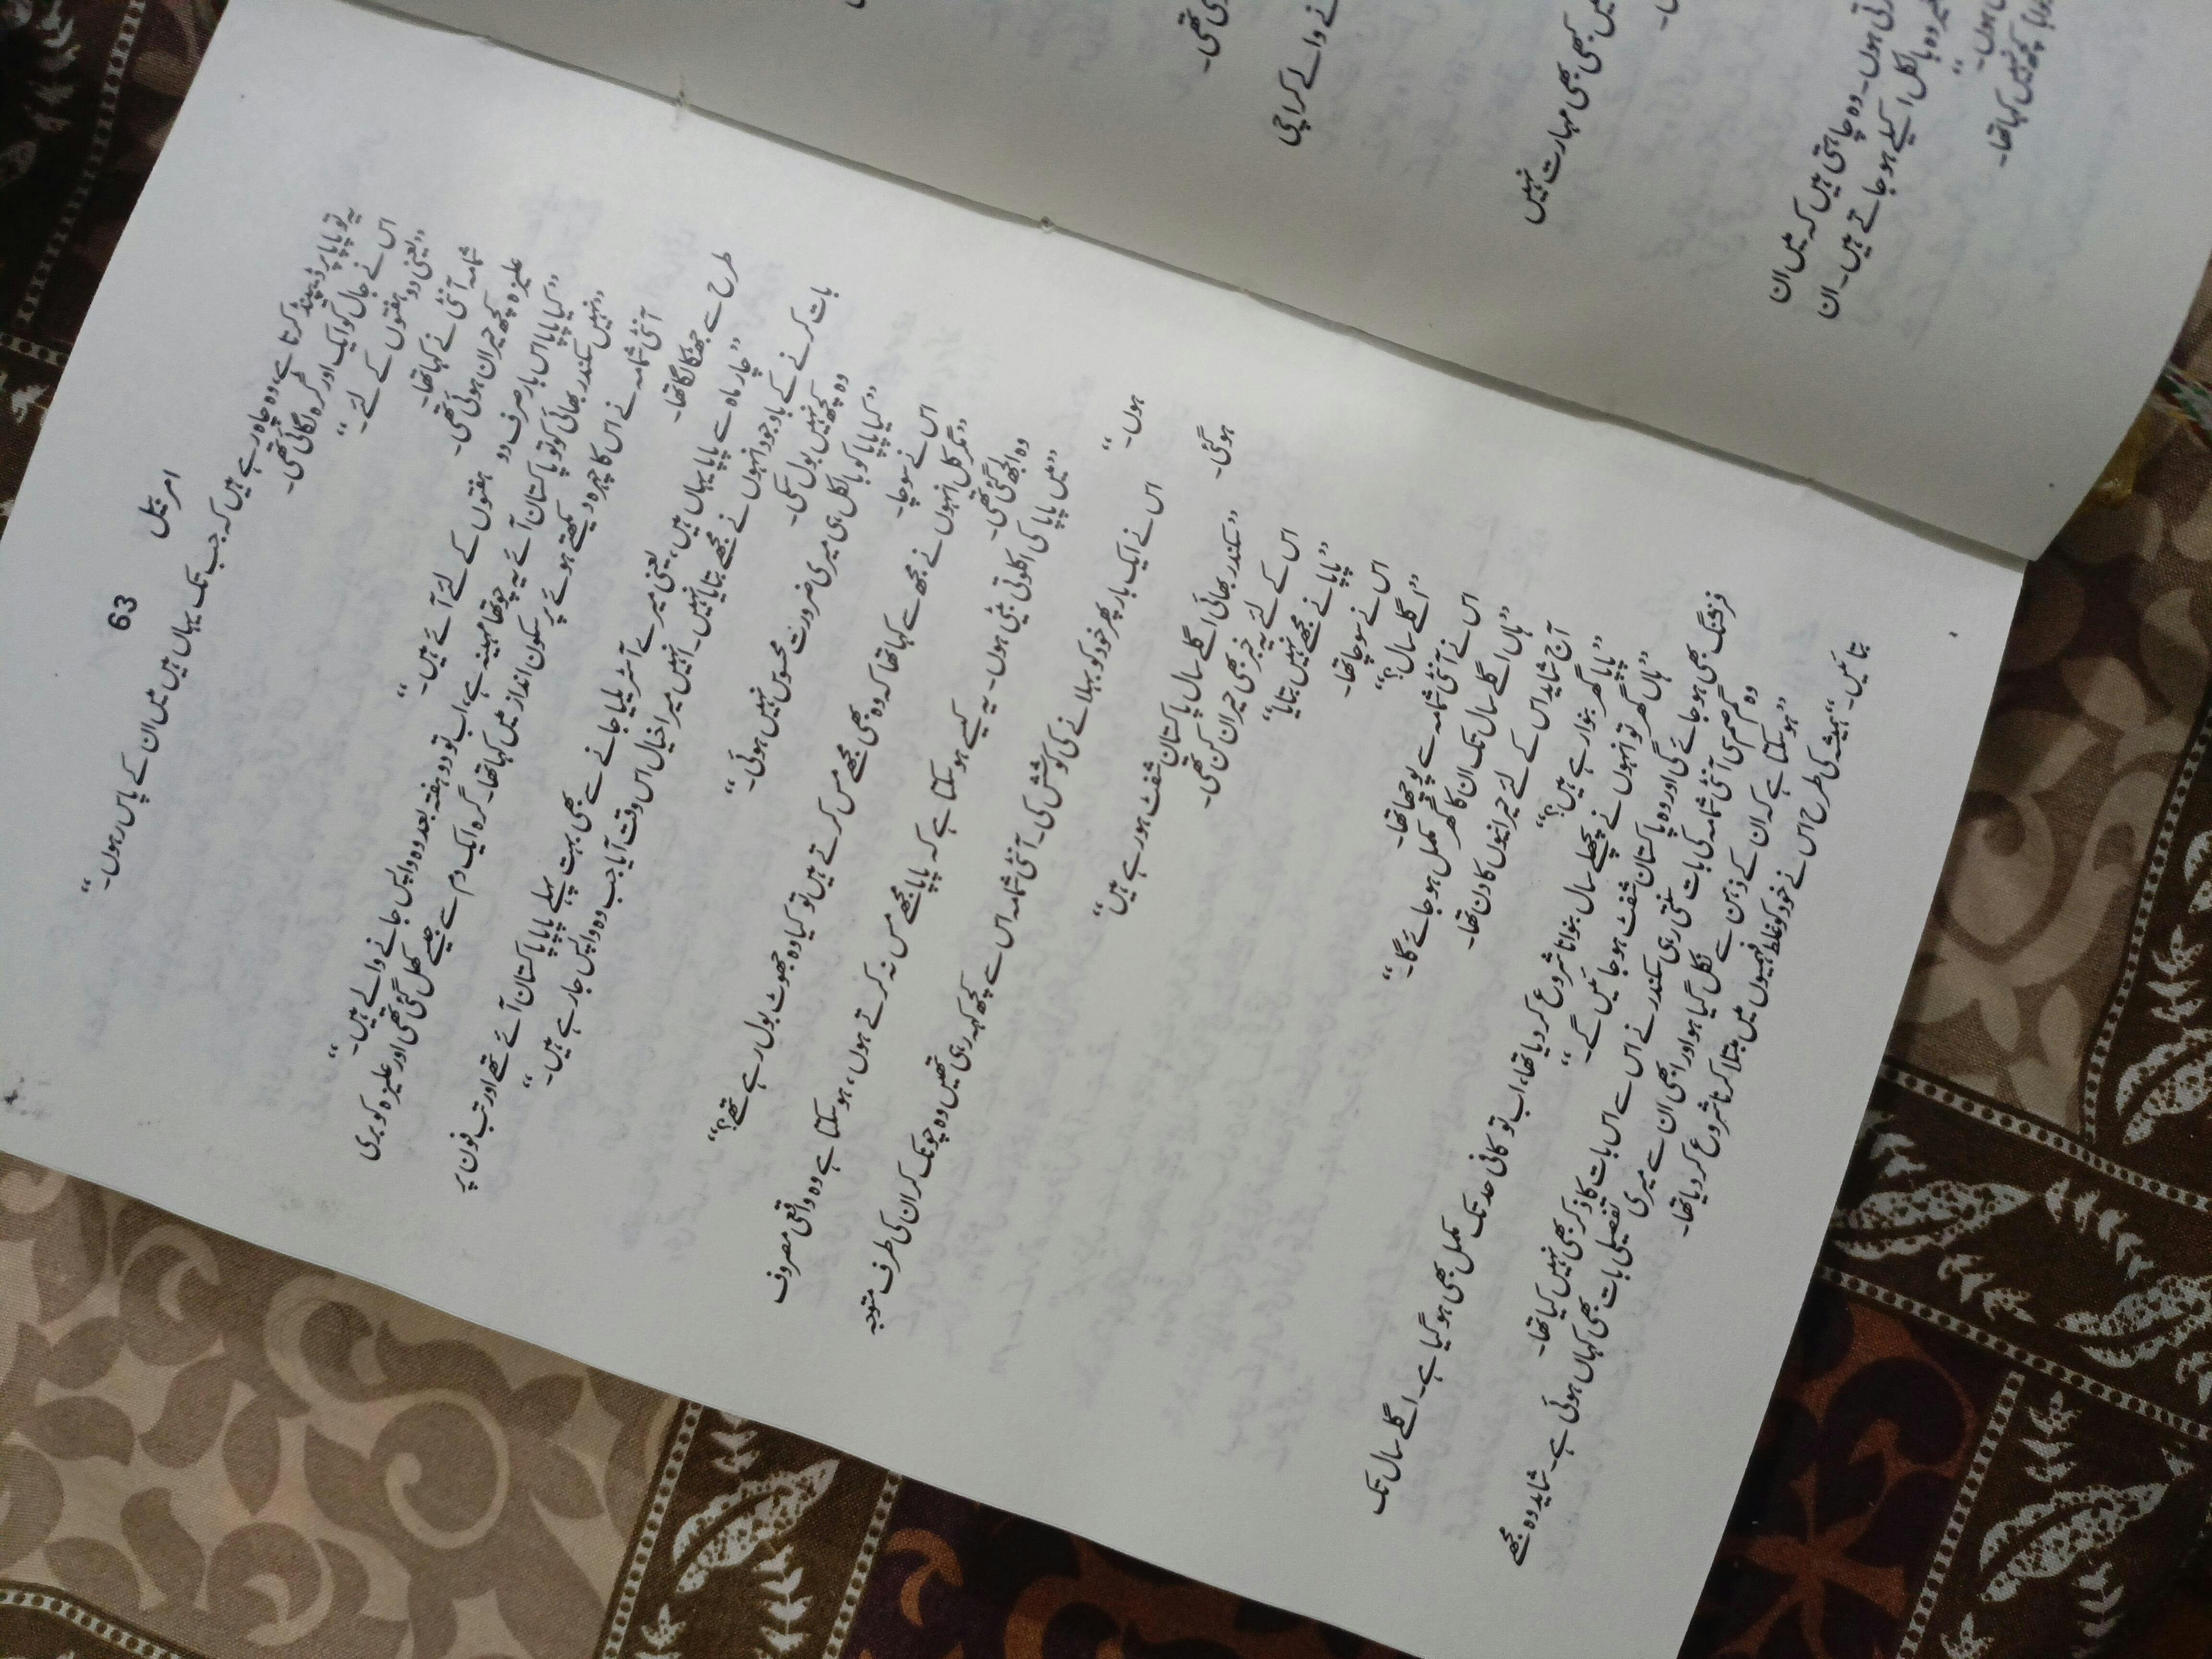 امر بیل
63
یہ تو پاپا پر ڈیپینڈ کرتا ہے، وہ چاہ رہے ہیں کہ جب تک یہاں ہیں میں ان کے پاس رہوں۔“
اس نے جال کو ایک اور گرہ لگائی تھی۔
”یعنی دو ہفتوں کے لئے۔“
شمامہ آنٹی نے کہا تھا۔
علیزہ کچھ حیران ہوئی تھی۔
”کیا پاپا اس بار صرف دو ہفتوں کے لئے آئے ہیں۔“
”نہیں سکندر بھائی کو تو پاکستان آئے یہ چوتھا مہینہ ہے، اب تو دو ہفتہ بعد وہ واپس جانے والے ہیں۔“
آنٹی شمامہ نے اس کا چہرہ دیکھتے ہوئے پر سکون انداز میں کہا تھا۔ گرہ ایک دم سے جیسے کھل گئی تھی اور علیزہ کو بری
طرح سے جھٹکا لگا تھا۔
”چار ماہ سے پاپا یہاں ہیں، یعنی میرے آسٹریلیا جانے سے بھی بہت پہلے پاپا پاکستان آئے تھے اور تب فون پر
بات کرنے کے باوجود انہوں نے مجھے بتایا نہیں۔ انہیں میرا خیال اس وقت آیا جب وہ واپس جا رہے ہیں۔“
وہ کچھ نہیں بول سکی۔
”کیا پاپا کو بالکل ہی میری ضرورت محسوس نہیں ہوئی۔“
اس نے سوچا۔
”مگر کل انہوں نے مجھ سے کہا تھا کہ وہ بھی مجھے مس کرتے ہیں تو کیا وہ جھوٹ بول رہے تھے؟“
وہ الجھ گئی تھی۔
”میں پاپا کی اکلوتی بیٹی ہوں۔ یہ کیسے ہو سکتا ہے کہ پاپا مجھے مس نہ کرتے ہوں، ہو سکتا ہے وہ واقعی مصروف
ہوں۔“
اس نے ایک بار پھر خود کو بہلانے کی کوشش کی۔ آنٹی شمامہ اس سے کچھ کہہ رہی تھیں وہ چونک کر ان کی طرف متوجہ
ہو گئی۔
”سکندر بھائی اگلے سال پاکستان شفٹ ہو رہے ہیں“
اس کے لئے یہ خبر بھی حیران کن تھی۔
”پاپا نے مجھے نہیں بتایا“
اس نے سوچا تھا۔
”اگلے سال؟“
اس نے آنٹی شمامہ سے پوچھا تھا۔
”ہاں اگلے سال تک ان کا گھر مکمل ہو جائے گا۔“
آج شاید اس کے لئے حیرانیوں کا دن تھا۔
”پاپا گھر بنوا رہے ہیں؟“
”ہاں گھر تو انہوں نے پچھلے سال بنوانا شروع کر دیا تھا، اب تو کافی حد تک مکمل بھی ہو گیا ہے۔ اگلے سال تک
فرنشنگ بھی ہو جائے گی اور وہ پاکستان شفٹ ہو جائیں گے۔“
وہ گم صم سی آنٹی شمامہ کی بات سنتی رہی سکندر نے اس سے اس بات کا ذکر بھی نہیں کیا تھا۔
”ہو سکتا ہے کہ ان کے ذہن سے نکل گیا ہو اور ابھی ان سے میری تفصیلی بات بھی کہاں ہوئی ہے۔ شاید وہ مجھے
بتائیں۔“ ہمیشہ کی طرح اس نے خود کو غلط فہمیوں میں مبتلا کرنا شروع کر دیا تھا۔
نے والے کراچی
بھی بھی مہارت نہیں
ہوں۔ وہ چاہتی ہیں کہ میں ان
وہ بالکل اکیلے ہو جاتے ہیں۔ ان
کچھ نہیں کہا تھا۔